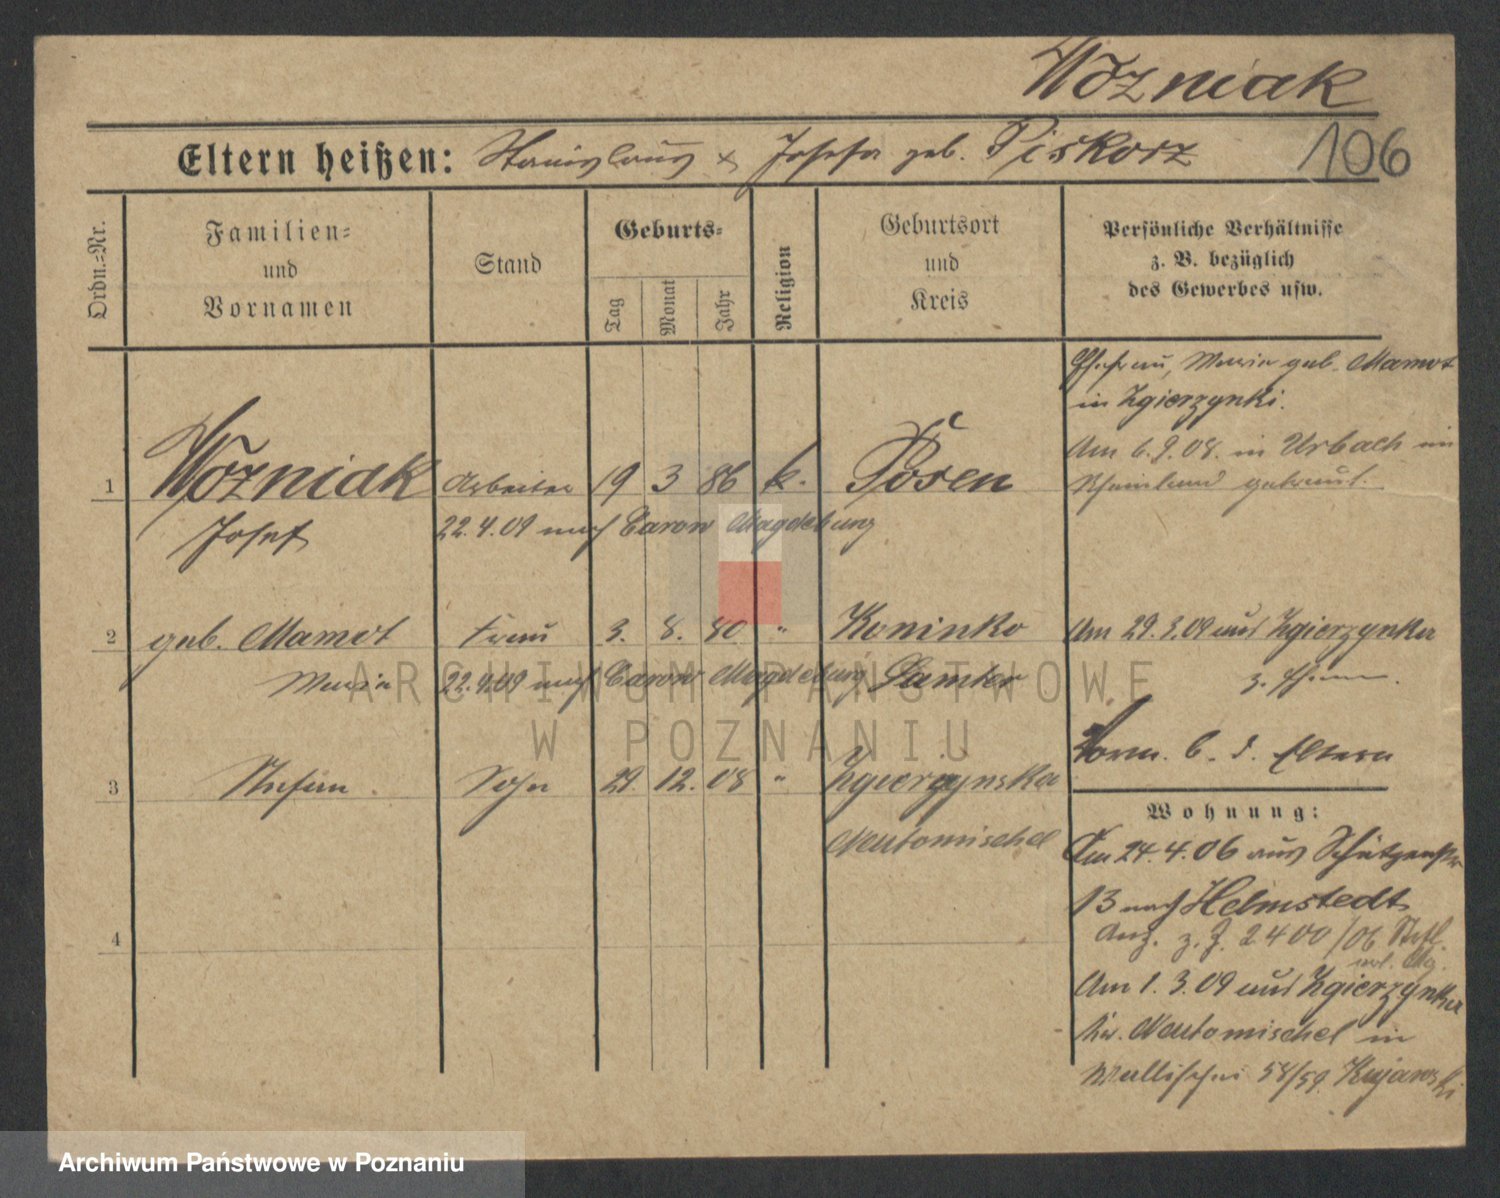 Wozniak
106
Eltern heißen: Stanislaus x Josefa geb. Piskorz
Ordn.=Nr.
Familien= und Vornamen
Stand
Geburts=
Tag
Monat
Jahr
Religion
Geburtsort und Kreis
Persönliche Verhältnisse
z. B. bezüglich
des Gewerbes usw.
Ehefrau, Maria geb. Mamot
in Zgierzynki.
Am 6.9.08. in Urbach im
Rheinland getraut.
1 Wozniak Arbeiter 19 3 86 k. Posen
Josef 22.4.09 nach Carow Magdeburg
2 geb. Mamot Frau 3. 8. 80 " Koninko
Maria 22.4.09 nach Carow Magdeburg Samter
Am 29.3.09 aus Zgierzynka
z. Ehem.
Vorm. b. d. Eltern
3 Stefan Sohn 29. 12. 08 " Zgierzynska
Neutomischel
4
Wohnung:
Am 24.4.06 aus Schützenstr
13 nach Helmstedt
Anz. z. Z. 2400/06
Am 1.3.09 aus Zgierzynka
Kr. Neutomischel in
Wallischei 58/59. Kujawski
ARCHIWUM PAŃSTWOWE
W POZNANIU
Archiwum Państwowe w Poznaniu